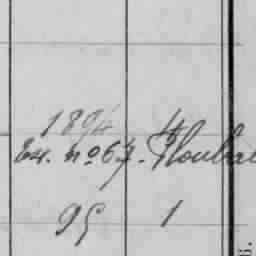 1894
Ex. no 67. Ploubal
95 1